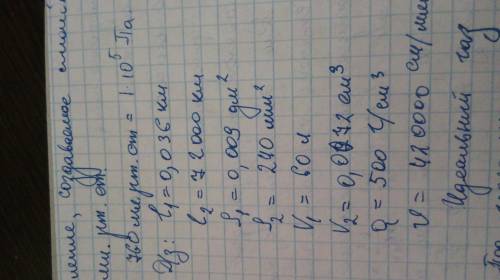 ление, создаваемое
мм. рт. ст.
760 мм. рт. ст = 1·10⁵ Па
Дз: l₁ = 0,036 км
l₂ = 72000 км
S₁ = 0,009 дм²
S₂ = 240 мм²
V₁ = 60 л
V₂ = 0,0072 см³
q = 500 г/см³
v = 420000 см/мин
Идеальный газ